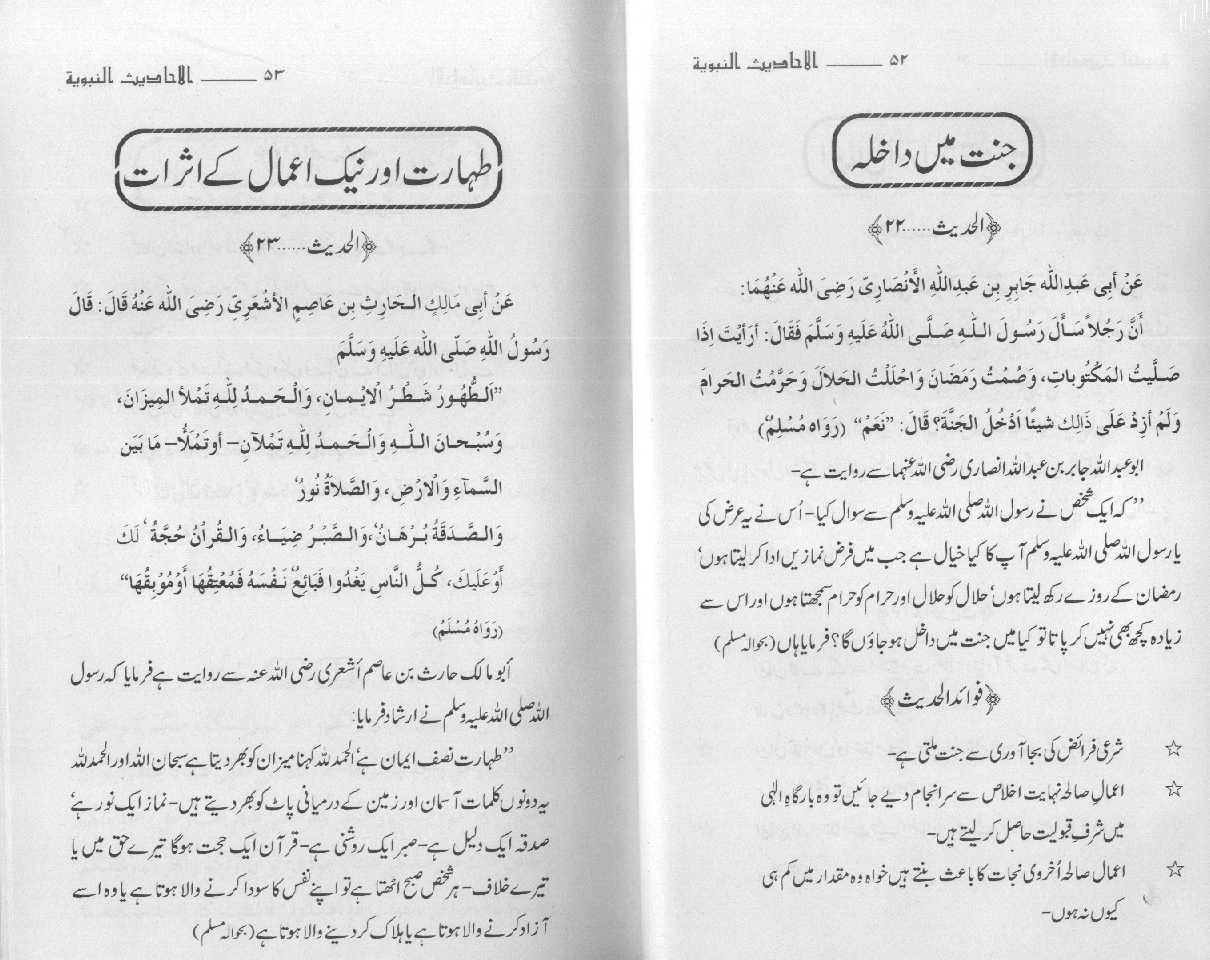 ۵۲ ——— الاحادیث النبویة
جنت میں داخلہ
﴿الحدیث......۲۲﴾
عَنْ أبِی عَبدِاللّٰه جَابِرِ بِن عَبدِاللّٰهِ الأنْصَارِیّ رَضِیَ اللّٰه عَنْهُمَا:
أَنَّ رَجُلاً سَأَلَ رَسُولَ اللّٰهِ صَلَّی اللّٰهُ عَلَیهِ وَسَلَّمَ فَقَالَ: أرَأیْتَ اِذَا
صَلَّیتُ المَکْتُوباتِ، وَصُمْتُ رَمَضَانَ وَاحْلَلْتُ الحَلالَ وَحَرَّمْتُ الحَرامَ
وَلَمْ أزِدْ عَلَی ذَالِكَ شیئًا اَدْخُلُ الجَنَّةَ؟ قَالَ: ”نَعَمْ“ (رَوَاه مُسْلِمٌ)
ابوعبداللہ جابر بن عبداللہ انصاری رضی اللہ عنہما سے روایت ہے-
”کہ ایک شخص نے رسول اللہ صلی اللہ علیہ وسلم سے سوال کیا- اُس نے یہ عرض کی
یا رسول اللہ صلی اللہ علیہ وسلم آپ کا کیا خیال ہے جب میں فرض نمازیں ادا کر لیتا ہوں‘
رمضان کے روزے رکھ لیتا ہوں‘ حلال کو حلال اور حرام کو حرام سمجھتا ہوں اور اس سے
زیادہ کچھ بھی نہیں کر پاتا تو کیا میں جنت میں داخل ہو جاؤں گا؟ فرمایا ہاں (بحوالہ مسلم)
﴿فوائد الحدیث﴾
☆ شرعی فرائض کی بجا آوری سے جنت ملتی ہے-
☆ اعمالِ صالحہ نہایت اخلاص سے سرانجام دیے جائیں تو وہ بارگاہِ الٰہی
میں شرفِ قبولیت حاصل کر لیتے ہیں-
☆ اعمال صالحہ اُخروی نجات کا باعث بنتے ہیں خواہ وہ مقدار میں کم ہی
کیوں نہ ہوں-
۵۳ ——— الاحادیث النبویة
طہارت اور نیک اعمال کے اثرات
﴿الحدیث......۲۳﴾
عَنْ أبِی مَالِكٍ الحَارِثِ بِن عَاصِمٍ الأشْعَرِیِّ رَضِیَ اللّٰه عَنْهُ قَالَ: قَالَ
رَسُولُ اللّٰهِ صَلّی اللّٰه عَلَیهِ وَسَلَّمَ
”اَلطُّهُورُ شَطْرُ الْاِیْمَانِ، وَالْحَمدُ لِلّٰهِ تَمْلأ المِیزَانَ،
وَسُبْحَانَ اللّٰهِ وَالْحَمدُ لِلّٰهِ تَمْلَآنِ- أو تَمْلَأُ- مَا بَیَن
السَّمآءِ وَالْارْضِ، وَالصَّلاَةُ نُورٌ‘
وَالصَّدَقَةُ بُرْهَانٌ‘، وَالصَّبْرُ ضِیَاءٌ، وَالقُراٰنُ حُجَّةٌ‘ لَكَ
أوْ عَلَیكَ، کُلُّ النَّاسِ یَغْدُوا فَبَائِعٌ نَفْسَهُ فَمُعْتِقُهَا أوْ مُوْبِقُهَا“
(رَوَاهُ مُسْلمُ)
أبو مالک حارث بن عاصم أشعری رضی اللہ عنہ سے روایت ہے فرمایا کہ رسول
اللہ صلی اللہ علیہ وسلم نے ارشاد فرمایا:
”طہارت نصف ایمان ہے‘ الحمدللہ کہنا میزان کو بھر دیتا ہے سبحان اللہ اور الحمدللہ
یہ دونوں کلمات آسمان اور زمین کے درمیانی پاٹ کو بھر دیتے ہیں- نماز ایک نور ہے‘
صدقہ ایک دلیل ہے- صبر ایک روشنی ہے- قرآن ایک حجت ہوگا تیرے حق میں یا
تیرے خلاف- ہر شخص صبح اٹھتا ہے تو اپنے نفس کا سودا کرنے والا ہوتا ہے یا وہ اسے
آزاد کرنے والا ہوتا ہے یا ہلاک کر دینے والا ہوتا ہے (بحوالہ مسلم)